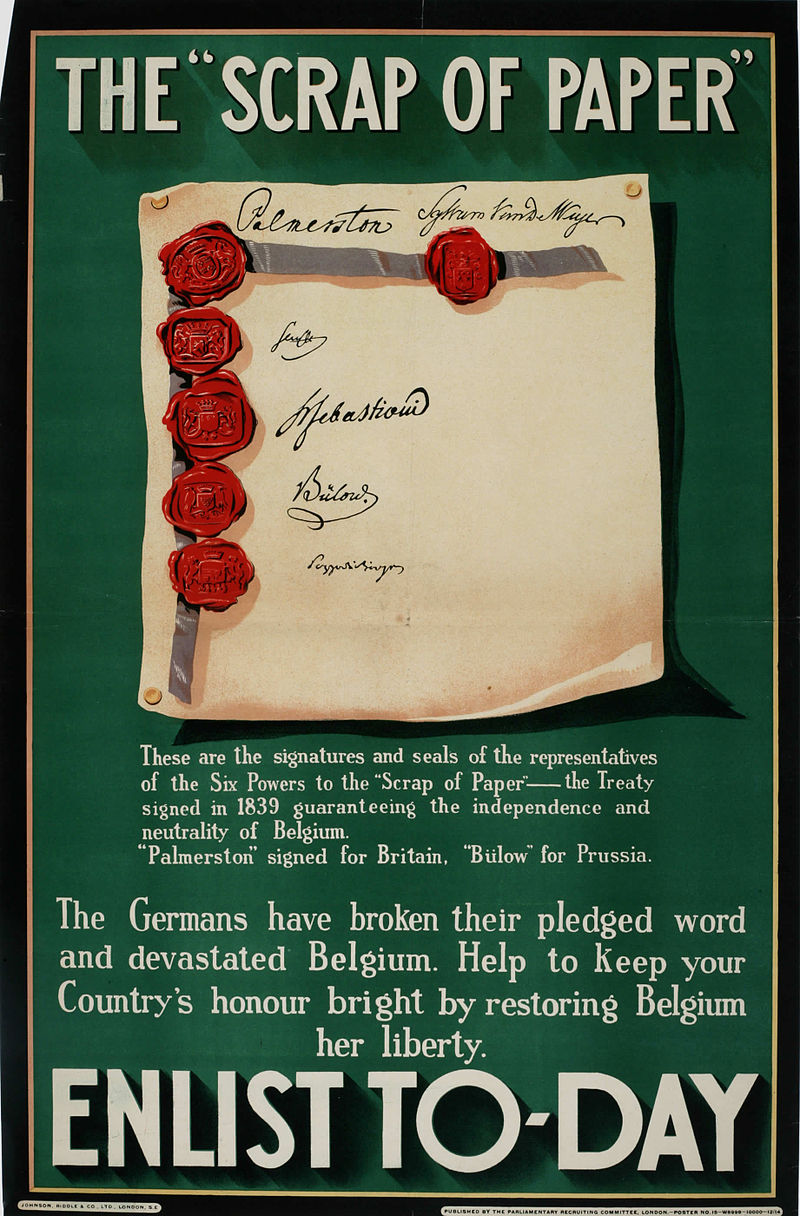 THE “SCRAP OF PAPER”
Palmerston Sylvain Van de Weyer
Senfft
H Sebastiani
Bülow.
Pozzo di Borgo
These are the signatures and seals of the representatives
of the Six Powers to the “Scrap of Paper”—the Treaty
signed in 1839 guaranteeing the independence and
neutrality of Belgium.
“Palmerston” signed for Britain, “Bülow” for Prussia.
The Germans have broken their pledged word
and devastated Belgium. Help to keep your
Country's honour bright by restoring Belgium
her liberty.
ENLIST TO-DAY
JOHNSON, RIDDLE & CO., LTD., LONDON, S.E
PUBLISHED BY THE PARLIAMENTARY RECRUITING COMMITTEE, LONDON.—POSTER NO. 15—W8998—10000—12/14